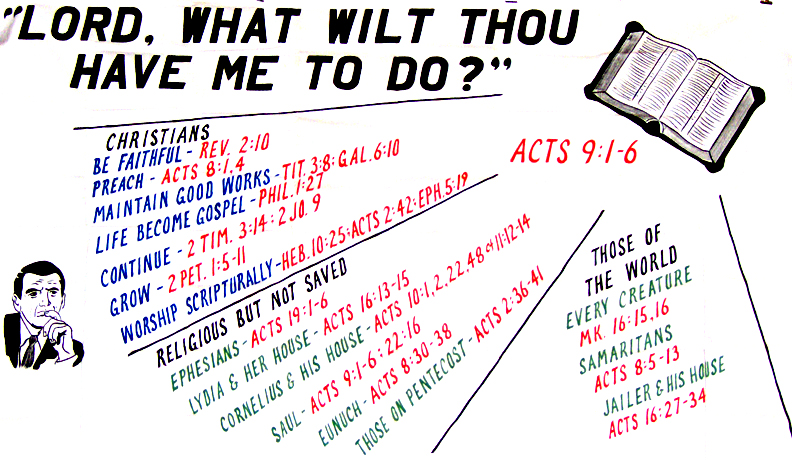 "LORD, WHAT WILT THOU
HAVE ME TO DO?"
ACTS 9:1-6
CHRISTIANS
BE FAITHFUL - REV. 2:10
PREACH - ACTS 8:1,4
MAINTAIN GOOD WORKS - TIT. 3:8: GAL. 6:10
LIFE BECOME GOSPEL - PHIL. 1:27
CONTINUE - 2 TIM. 3:14: 2 JO. 9
GROW - 2 PET. 1:5-11
WORSHIP SCRIPTURALLY - HEB. 10:25: ACTS 2:42: EPH. 5:19
RELIGIOUS BUT NOT SAVED
EPHESIANS - ACTS 19:1-6
LYDIA & HER HOUSE - ACTS 16:13-15
CORNELIUS & HIS HOUSE - ACTS 10:1,2,22,48 cf 11:12-14
SAUL - ACTS 9:1-6: 22:16
EUNUCH - ACTS 8:30-38
THOSE ON PENTECOST - ACTS 2:36-41
THOSE OF
THE WORLD
EVERY CREATURE
MK. 16:15,16
SAMARITANS
ACTS 8:5-13
JAILER & HIS HOUSE
ACTS 16:27-34